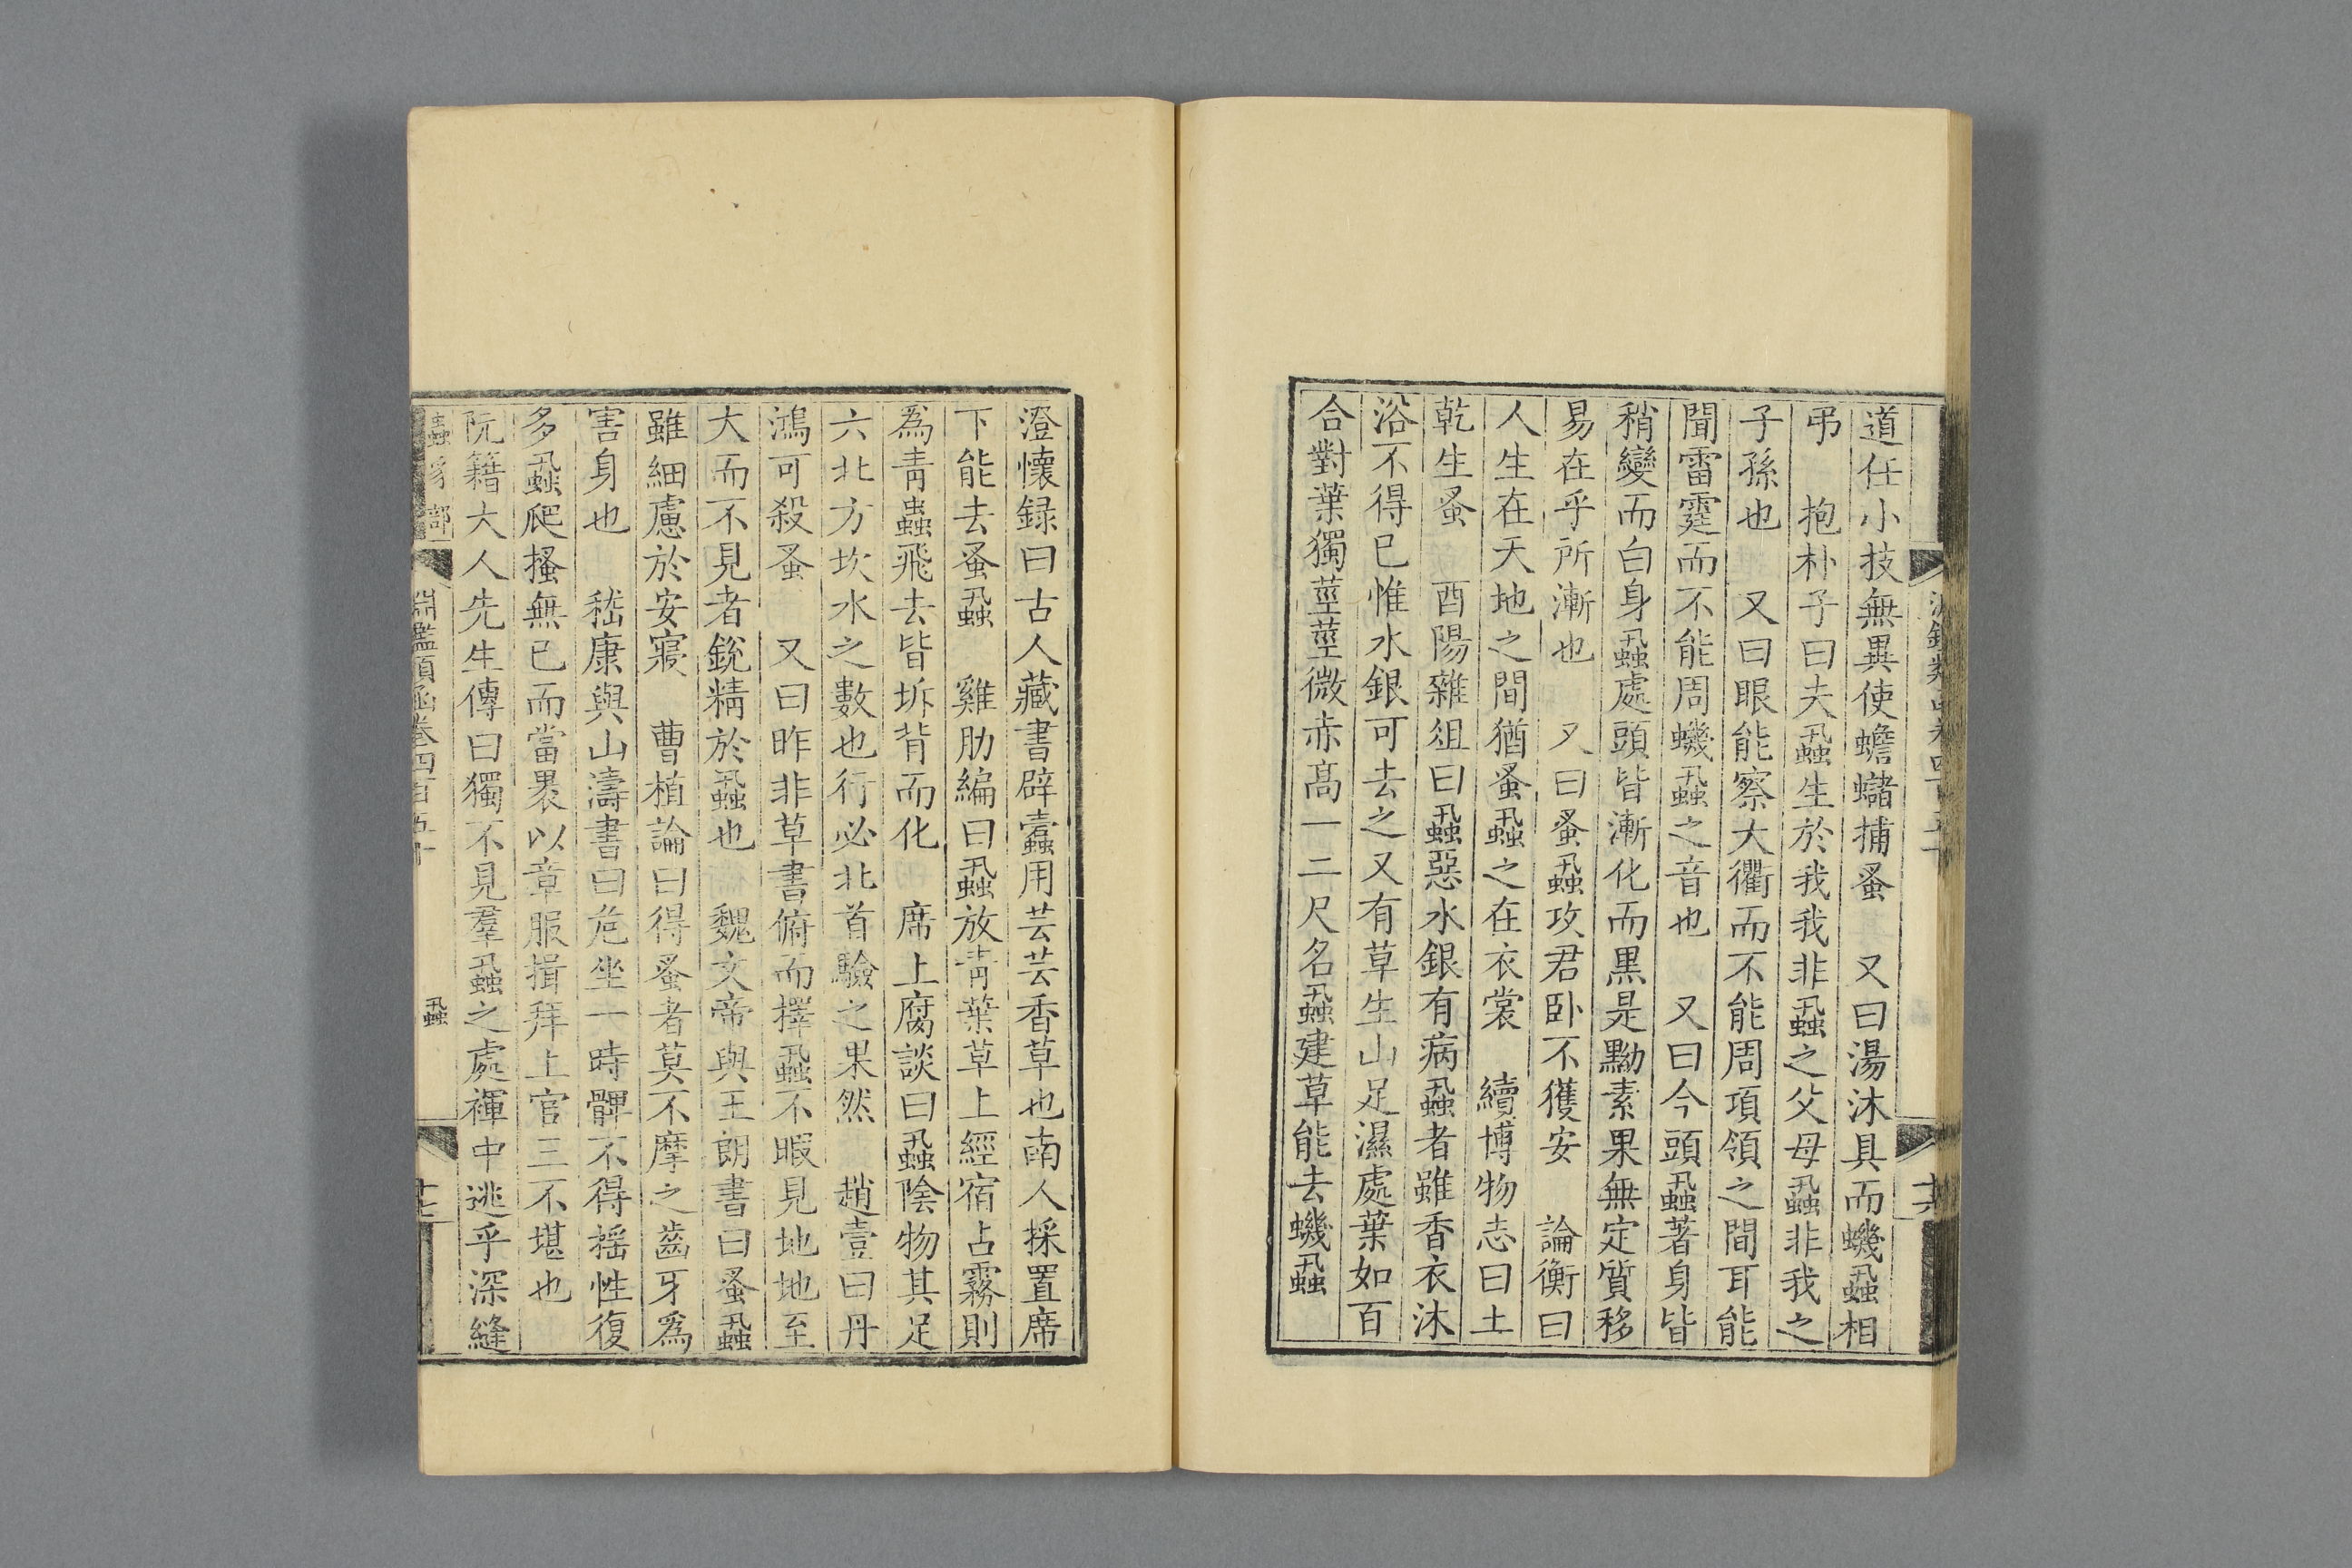 道任小技無異使蟾蠩捕蚤　又曰湯沐具而蟣蝨相
弔　抱朴子曰夫蝨生於我我非蝨之父母蝨非我之
子孫也　又曰眼能察大衢而不能周項領之間耳能
聞雷霆而不能周蟣蝨之音也　又曰今頭蝨著身皆
稍變而白身蝨處頭皆漸化而黑是黝素果無定質移
易在乎所漸也　又曰蚤蝨攻君卧不獲安　論衡曰
人生在天地之間猶蚤蝨之在衣裳　續博物志曰土
乾生蚤　酉陽雜俎曰蝨惡水銀有病蝨者雖香衣沐
浴不得已惟水銀可去之又有草生山足濕處葉如百
合對葉獨莖莖微赤高一二尺名蝨建草能去蟣蝨
澄懷録曰古人藏書辟蠧用芸芸香草也南人採置席
下能去蚤蝨　雞肋編曰蝨放青葉草上經宿占霧則
為青蟲飛去皆坼背而化　席上腐談曰蝨陰物其足
六北方坎水之數也行必北首驗之果然　趙壹曰丹
鴻可殺蚤　又曰昨非草書俯而擇蝨不暇見地地至
大而不見者銳精於蝨也　魏文帝與王朗書曰蚤蝨
雖細慮於安寢　曹植論曰得蚤者莫不摩之齒牙為
害身也　嵇康與山濤書曰危坐一時髀不得摇性復
多蝨爬搔無已而當裹以章服揖拜上官三不堪也
阮籍大人先生傳曰獨不見羣蝨之處褌中逃乎深縫
蟲豸部
淵鑑類函卷四百五十
蝨